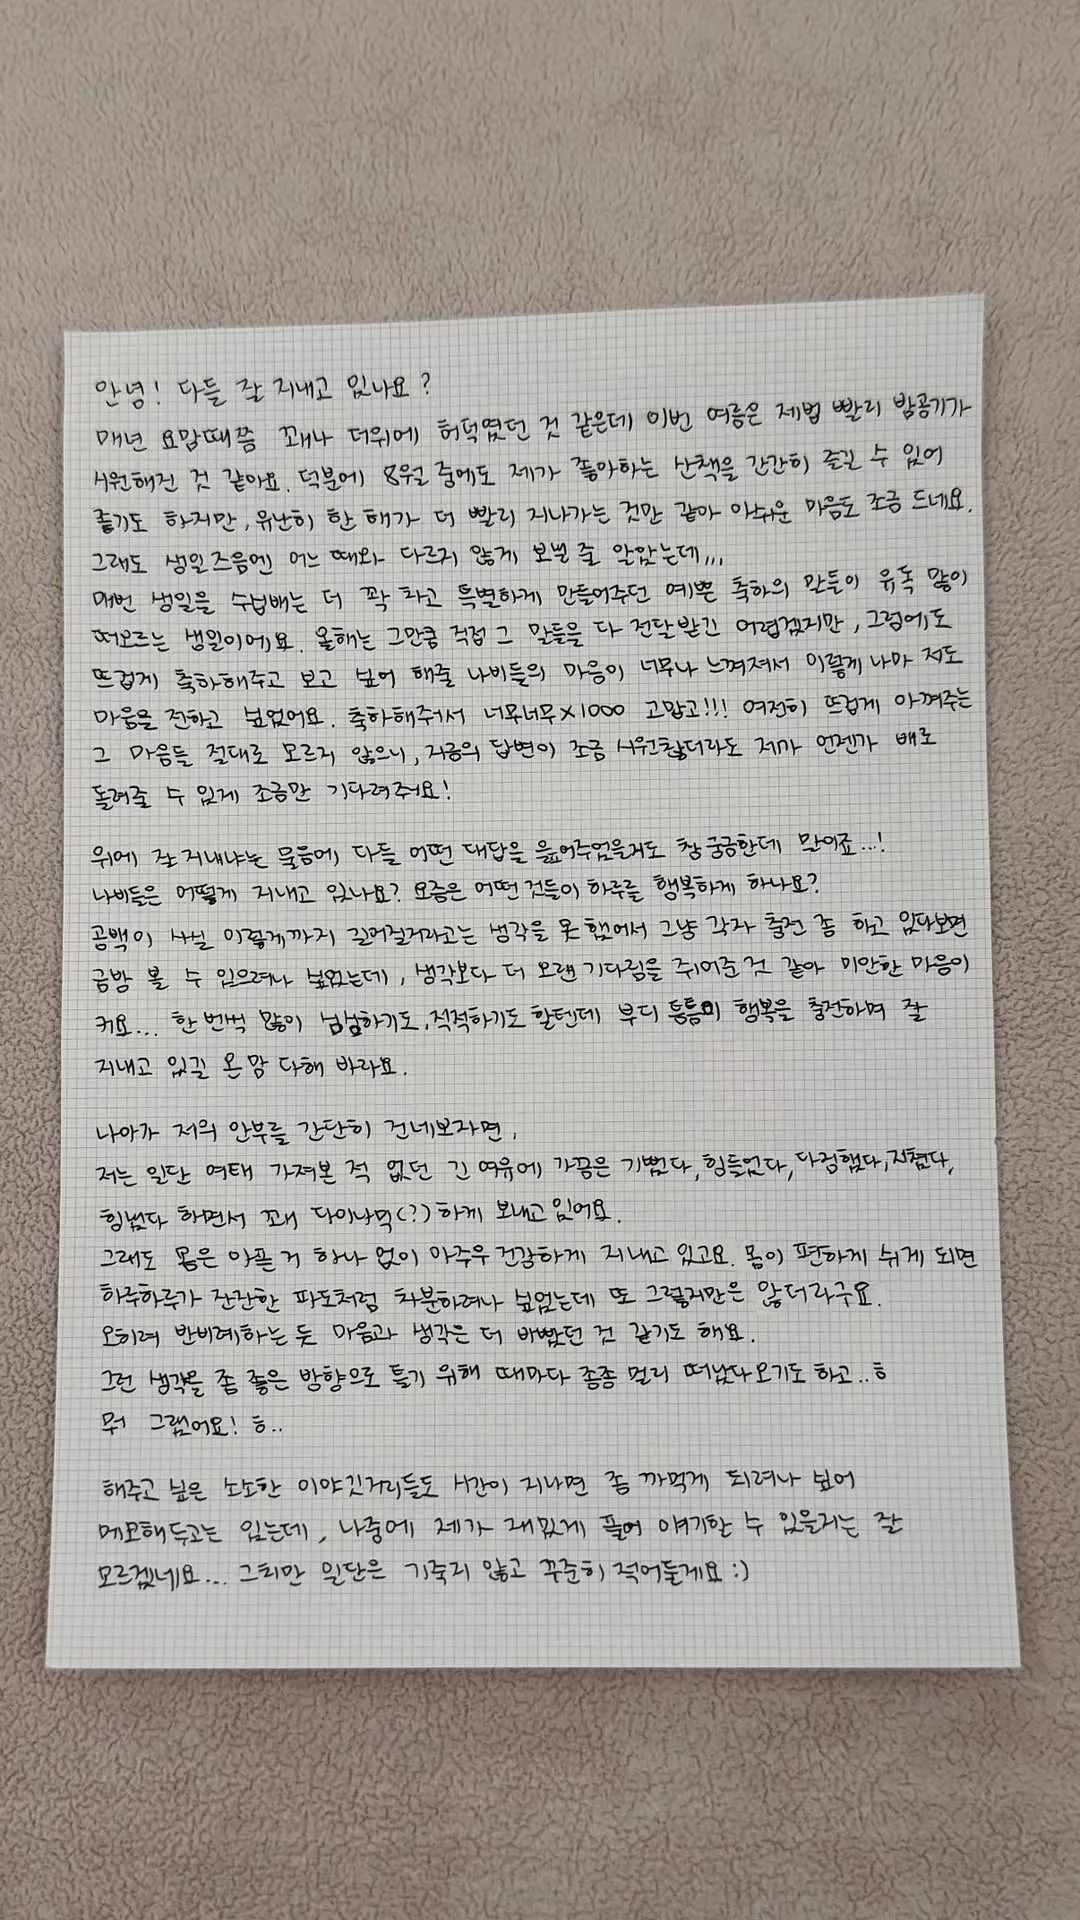 안녕! 다들 잘 지내고 있나요?
매년 요맘때쯤 꽤나 더위에 허덕였던 것 같은데 이번 여름은 제법 빨리 밤공기가
시원해진 것 같아요. 덕분에 8월 중에도 제가 좋아하는 산책을 간간히 즐길 수 있어
좋기도 하지만, 유난히 한 해가 더 빨리 지나가는 것만 같아 아쉬운 마음도 조금 드네요.
그래도 생일즈음엔 어느 때와 다르지 않게 보낼 줄 알았는데,,,
매번 생일을 수십배는 더 꽉 차고 특별하게 만들어주던 예쁜 축하의 말들이 유독 많이
떠오르는 생일이에요. 올해는 그만큼 직접 그 말들을 다 전달받긴 어렵겠지만, 그럼에도
뜨겁게 축하해주고 보고 싶어 해줄 나비들의 마음이 너무나 느껴져서 이렇게 나마 저도
마음을 전하고 싶었어요. 축하해주어서 너무너무×1000 고맙고!!! 여전히 뜨겁게 아껴주는
그 마음들 절대로 모르지 않으니, 지금의 답변이 조금 시원찮더라도 제가 언젠가 배로
돌려줄 수 있게 조금만 기다려주어요!
위에 잘 지내냐는 물음에 다들 어떤 대답을 읊어주었을지도 참 궁금한데 말이죠...!
나비들은 어떻게 지내고 있나요? 요즘은 어떤 것들이 하루를 행복하게 하나요?
공백이 사실 이렇게까지 길어질거라고는 생각을 못 했어서 그냥 각자 충전 좀 하고 있다보면
금방 볼 수 있으려나 싶었는데, 생각보다 더 오랜 기다림을 쥐어준 것 같아 미안한 마음이
커요... 한 번씩 많이 심심하기도, 적적하기도 할텐데 부디 틈틈이 행복을 충전하며 잘
지내고 있길 온 맘 다해 바라요.
나아가 저의 안부를 간단히 건네보자면,
저는 일단 여태 가져본 적 없던 긴 여유에 가끔은 기뻤다, 힘들었다, 다정했다, 지쳤다,
힘냈다 하면서 꽤 다이나믹(?)하게 보내고 있어요.
그래도 몸은 아픈 거 하나 없이 아주우 건강하게 지내고 있고요. 몸이 편하게 쉬게 되면
하루하루가 잔잔한 파도처럼 차분하려나 싶었는데 또 그렇지만은 않더라구요.
오히려 반비례하는 듯 마음과 생각은 더 바빴던 것 같기도 해요.
그런 생각을 좀 좋은 방향으로 틀기 위해 때마다 종종 멀리 떠났다 오기도 하고..ㅎ
뭐 그랬어요! ㅎ..
해주고 싶은 소소한 이야깃거리들도 시간이 지나면 좀 까먹게 되려나 싶어
메모해두고는 있는데, 나중에 제가 재밌게 풀어 얘기할 수 있을지는 잘
모르겠네요... 그치만 일단은 기죽지 않고 꾸준히 적어둘게요 :)